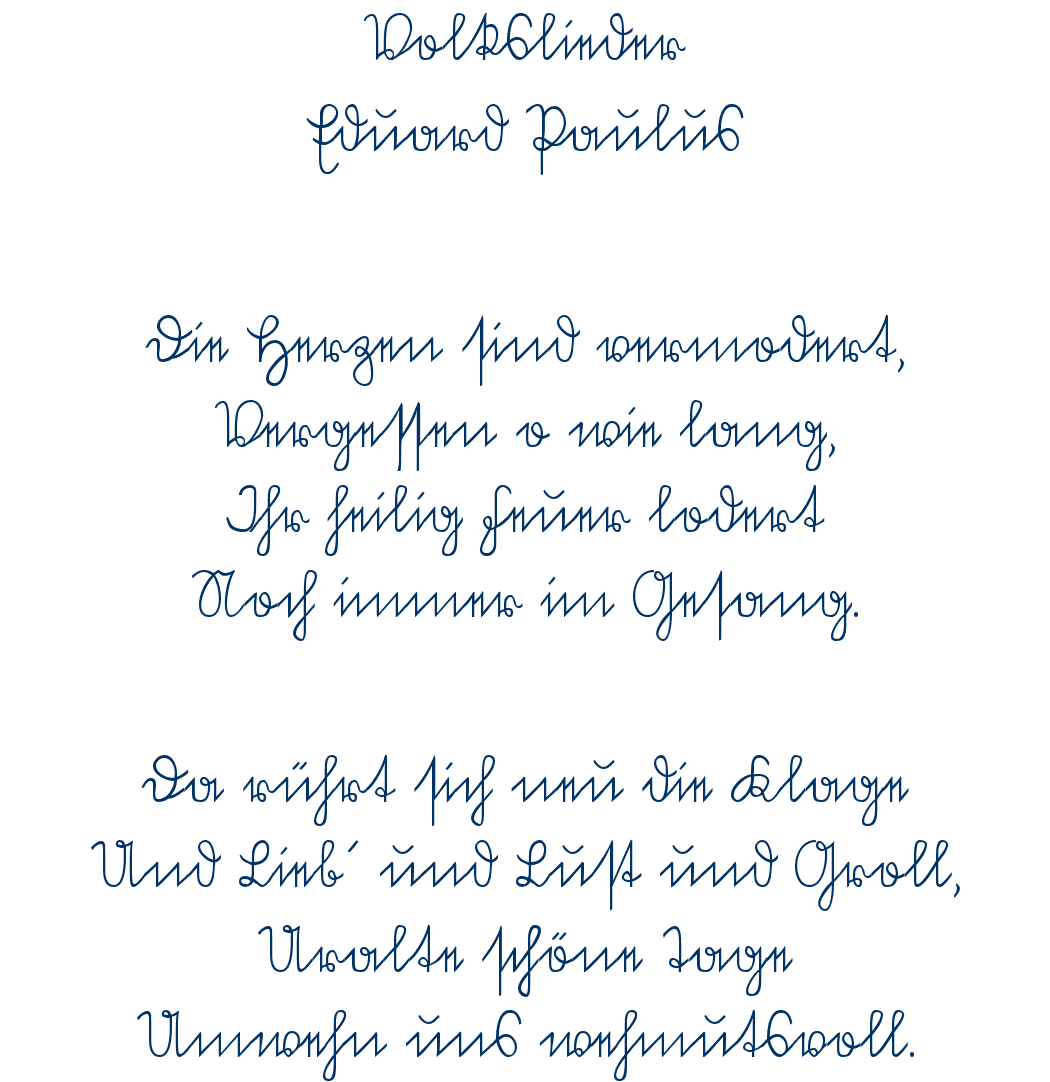 Volkslieder
Eduard Paulus
Die Herzen sind vermodert,
Vergessen o wie lang,
Ihr heilig Feuer lodert
Noch immer im Gesang.
Da rührt sich neu die Klage
Und Lieb´ und Lust und Groll,
Uralte schöne Tage
Umwehn uns wehmutsvoll.